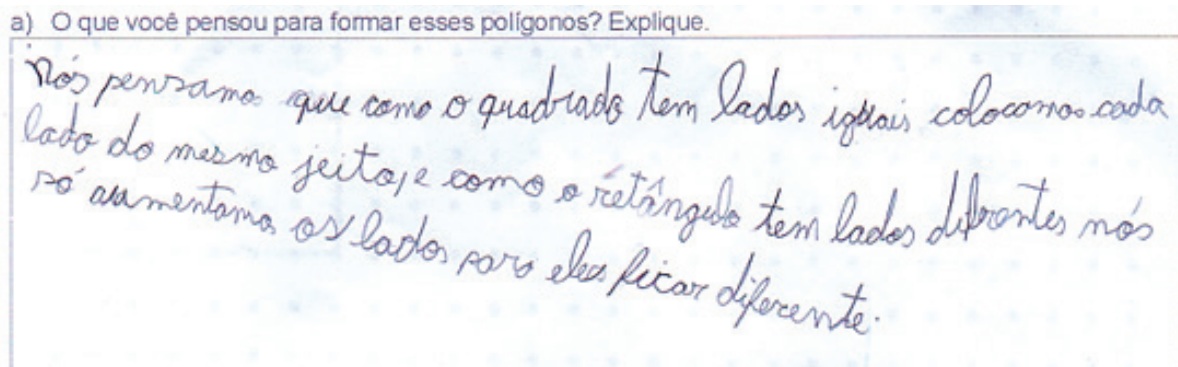 a) O que você pensou para formar esses polígonos? Explique.
Nós pensamos que como o quadrado tem lados iguais colocamos cada
lado do mesmo jeito, e como o retângulo tem lados diferentes nós
só aumentamos os lados para eles ficar diferente.